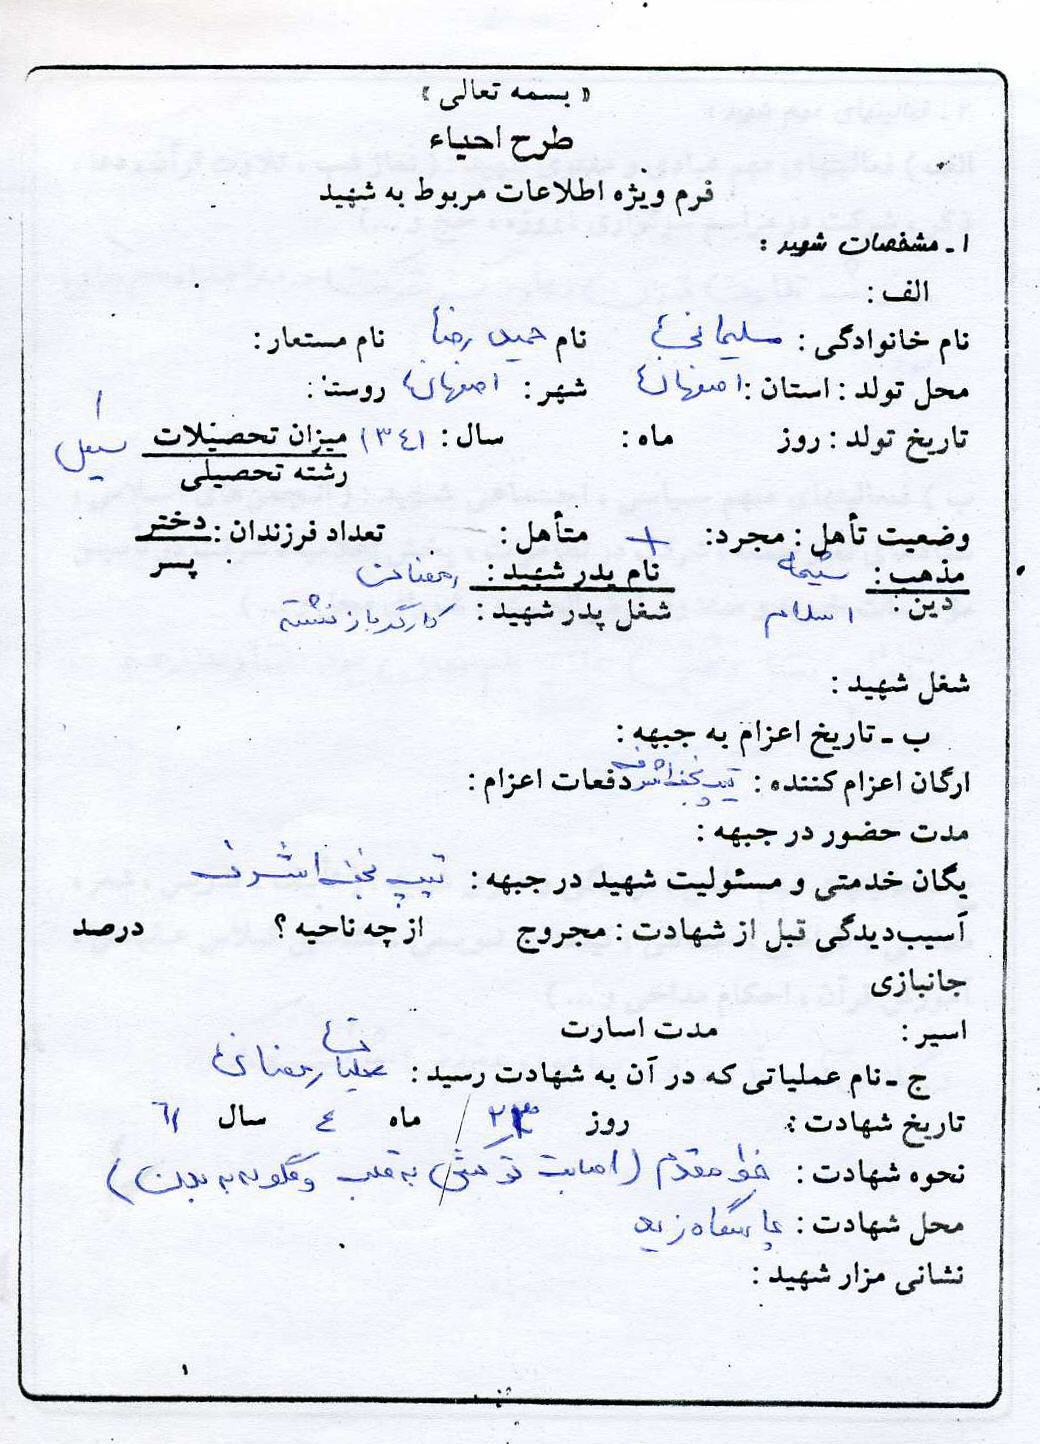 « بسمه تعالی »
طرح احیاء
فرم ویژه اطلاعات مربوط به شهید
۱ ـ مشخصات شهید :
الف :
نام خانوادگی : سلیمانی نام حمید رضا نام مستعار :
محل تولد : استان : اصفهان شهر : اصفهان روستا :
تاریخ تولد : روز ماه : سال : ۱۳۴۱ میزان تحصیلات
رشته تحصیلی
وضعیت تأهل : مجرد : + متأهل : تعداد فرزندان : دختر
پسر
مذهب : شیعه نام پدر شهید : رمضان
دین : اسلام شغل پدر شهید : کارگر بازنشسته
شغل شهید :
ب ـ تاریخ اعزام به جبهه :
ارگان اعزام کننده : تیپ نجف اشرف دفعات اعزام :
مدت حضور در جبهه :
یگان خدمتی و مسئولیت شهید در جبهه : تیپ نجف اشرف
آسیب‌دیدگی قبل از شهادت : مجروح از چه ناحیه ؟ درصد
جانبازی
اسیر : مدت اسارت
ج ـ نام عملیاتی که در آن به شهادت رسید : عملیات رمضان
تاریخ شهادت : روز ۲۳ ماه ۴ سال ۶۱
نحوه شهادت : خط مقدم (اصابت ترکش به قلب و گلوله به بدن)
محل شهادت : پاسگاه زید
نشانی مزار شهید :
۱